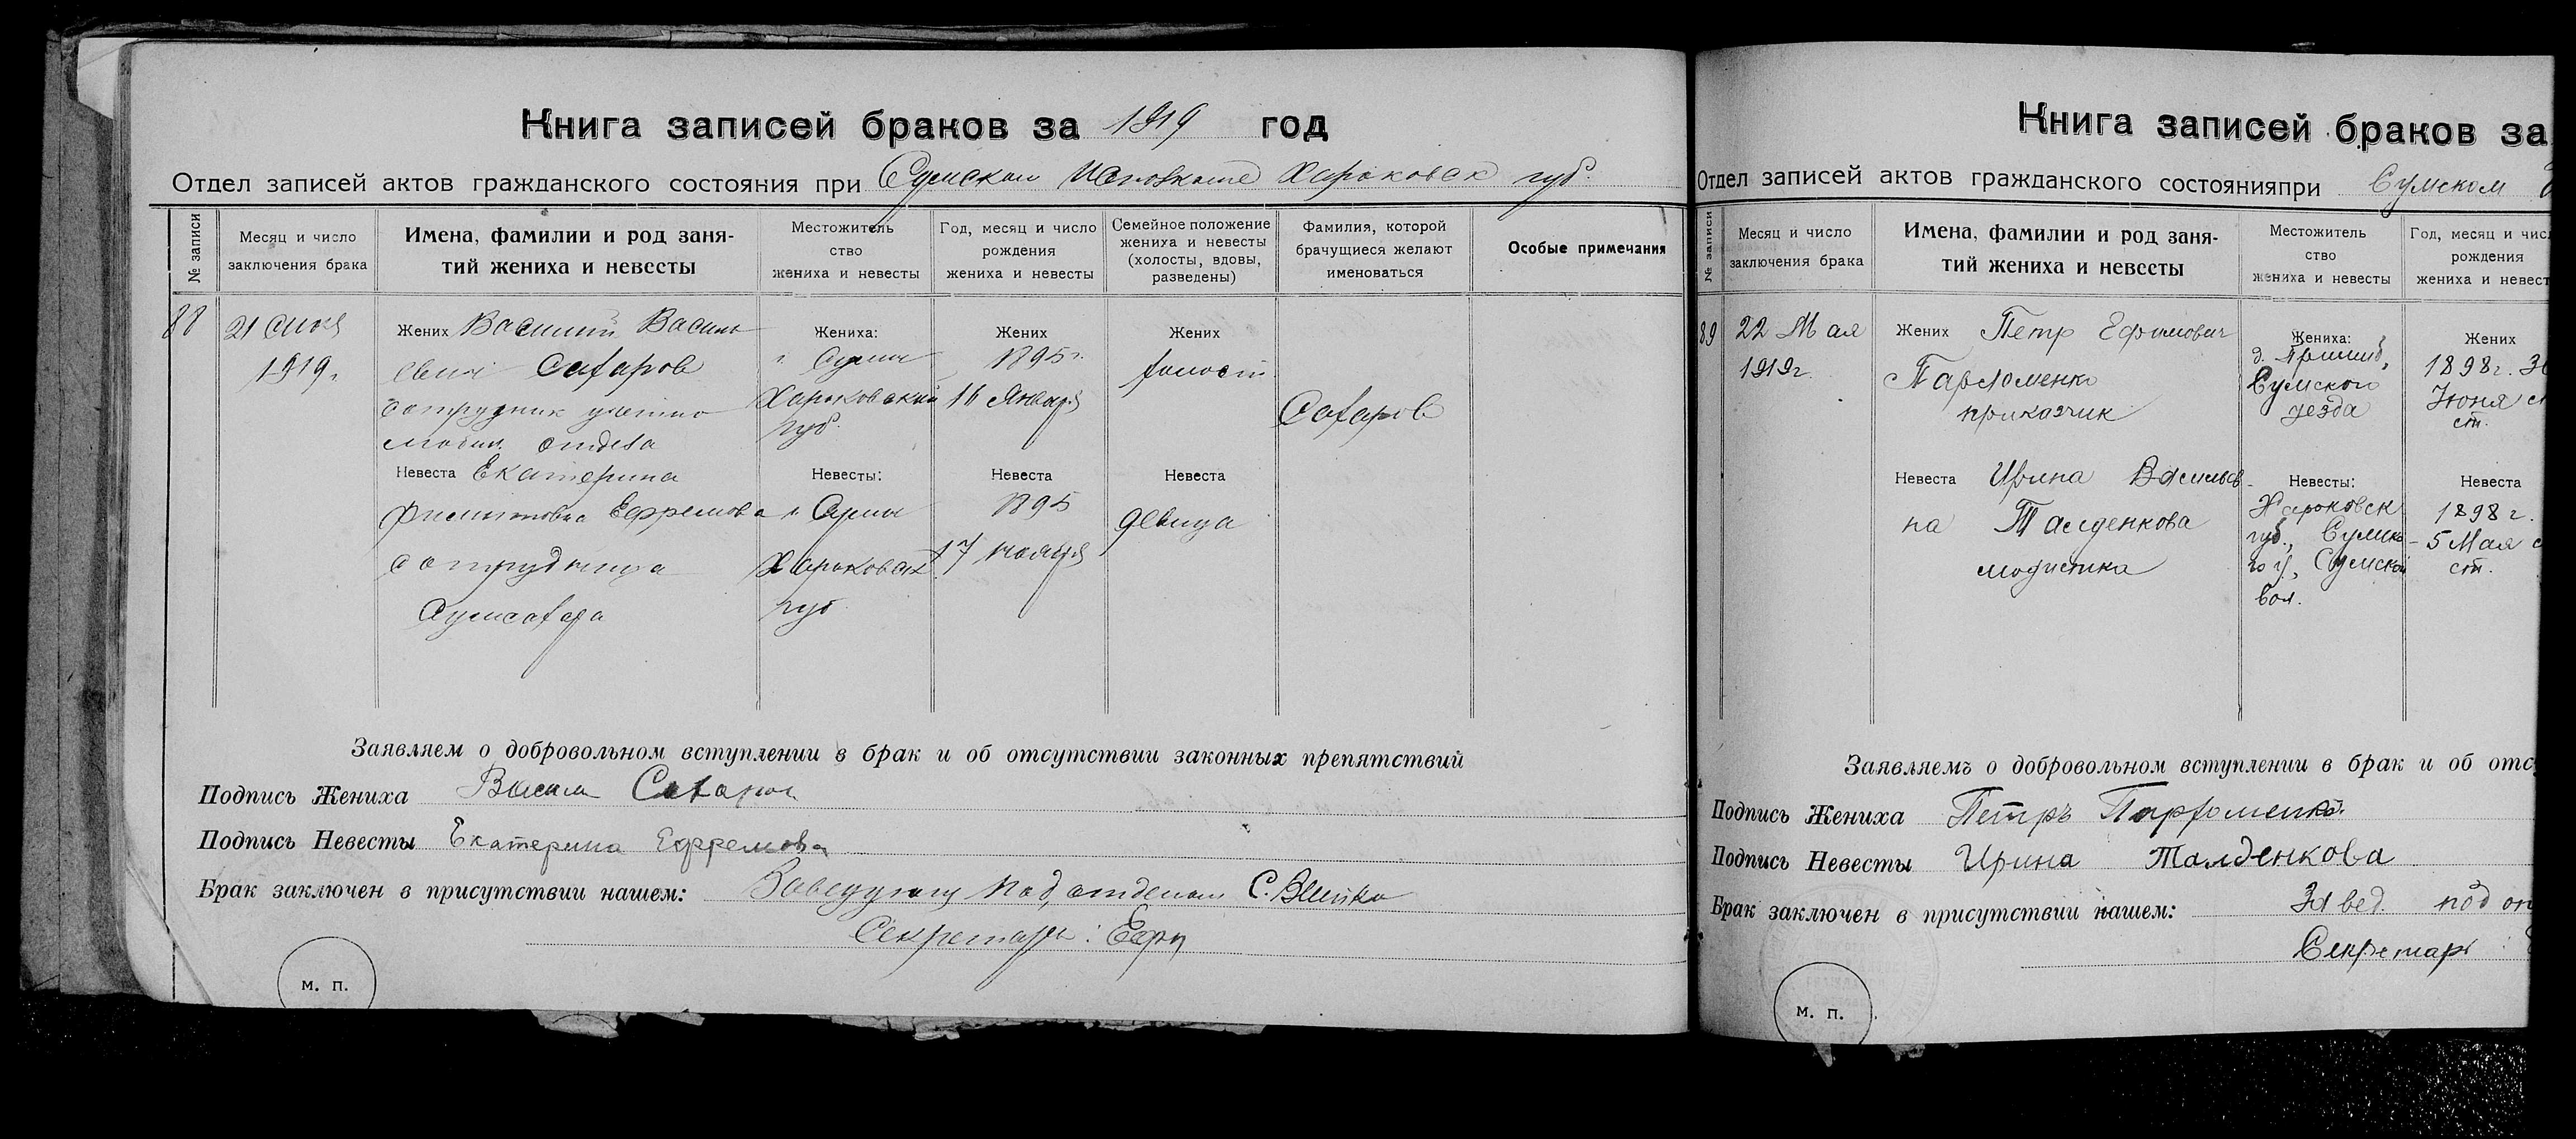 Книга записей браков за 1919 год
Отдел записей актов гражданского состояния при Сумском Исполкоме Харьковск губ.
№ записи
Месяц и число заключения брака
Имена, фамилии и род занятий жениха и невесты
Местожительство жениха и невесты
Год, месяц и число рождения жениха и невесты
Семейное положение жениха и невесты (холосты, вдовы, разведены)
Фамилия, которой брачущиеся желают именоваться
Особые примечания
88
21
1919 г.
Жених Василий Василь
евич Сахаров
сотрудник
отдела
Жениха:
г. Сумы
Харьковский
губ.
Жених
1895 г.
16 Января
Жених
холост
Сахаров
Невеста Екатерина
Ефремова
сотрудница
Невесты:
г. Сумы
Харьковск
губ.
Невеста
1895
17
Невеста
девица
Заявляем о добровольном вступлении в брак и об отсутствии законных препятствий
Подпись Жениха Сахаров
Подпись Невесты Екатерина Ефремова
Брак заключен в присутствии нашем: Заведующ под, отделом С.
Секретарь:
м. п.
Книга записей браков за
Отдел записей актов гражданского состоянияпри Сумском
№ записи
Месяц и число заключения брака
Имена, фамилии и род занятий жениха и невесты
Местожительство жениха и невесты
Год, месяц и чис
рождения
жениха и невест
89
22 Мая
1919 г.
Жених Петр Ефимович
Парфоменко
приказчик
Жениха:
Сумского
уезда
Жених
1898 г.
Июня
ст.
Невеста Ирина Васильев-
на Талденкова
модистка
Невесты:
Харьковск
губ., Сумско-
го у, Сумской
вол.
Невеста
1898 г.
5 Мая с
ст.
Заявляемъ о добровольном вступлении в брак и об отс
Подпись Жениха Петръ Парфоменко
Подпись Невесты Ирина Талденкова
Брак заключен в присутствии нашем: Завед. под от
Секретарь:
м. п.